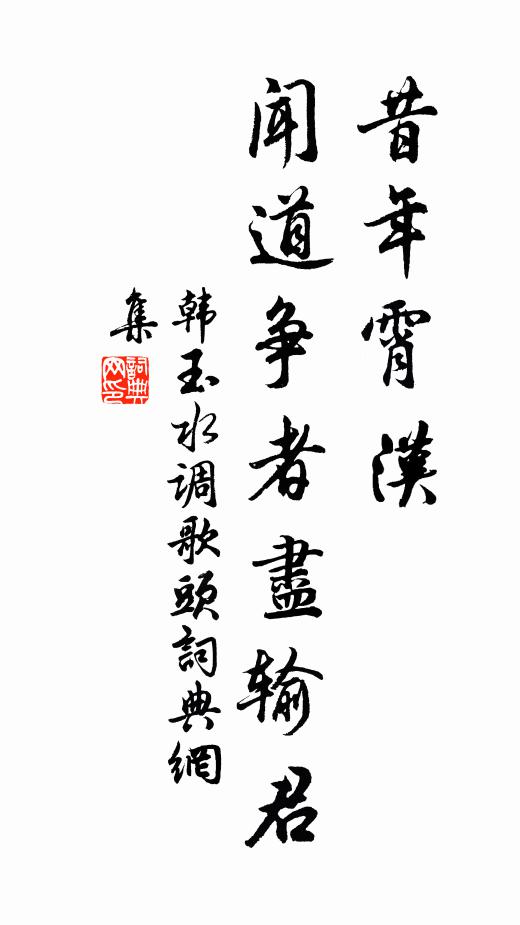 昔年霄漢
聞道爭者盡输君
韩玉水调歌頭詞典網
集
詞典網印